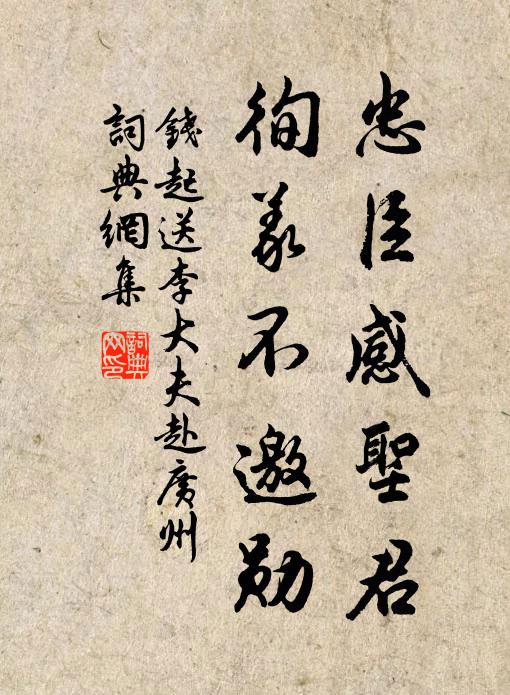 忠臣感聖君
徇義不邀勛
錢起送李大夫赴廣州
詞典網集
詞典网印